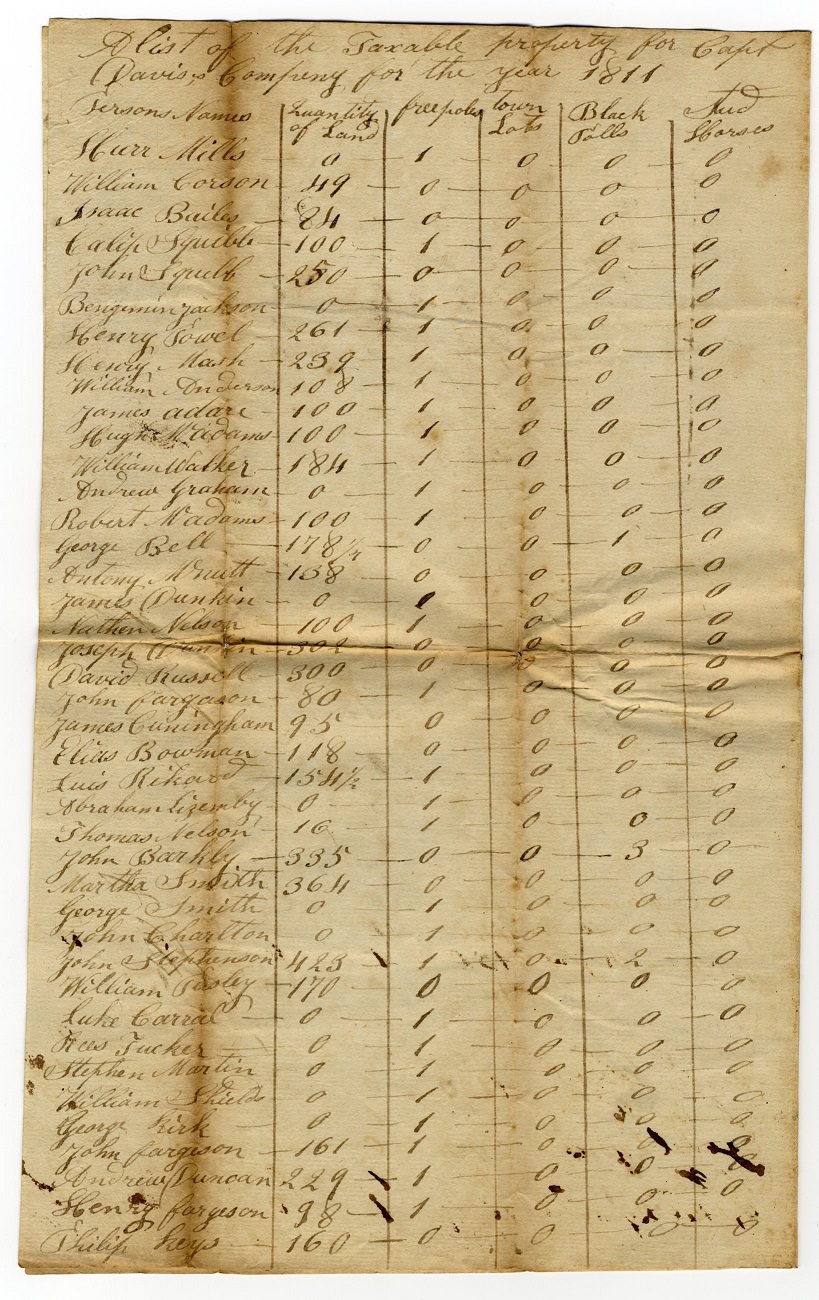 A list of the Taxable property for Capt
Davises Compeny for the year 1811
Persons Names Quantity of Land free poles town Lots Black Polls Stud Horses
Hurr Mills 0 1 0 0 0
William Corson 49 0 0 0 0
Isaac Bailes 84 0 0 0 0
Calip Squibb 100 1 0 0 0
John Squibb 250 0 0 0 0
Bengemin Jackson 0 1 0 0 0
Henry Powel 261 1 0 0 0
Henry Mash 239 1 0 0 0
William Anderson 108 1 0 0 0
James adare 100 1 0 0 0
Hugh Mcadams 100 1 0 0 0
William Walker 184 1 0 0 0
Andrew Graham 0 1 0 0 0
Robert Mcadams 100 1 0 0 0
George Bell 178½ 0 0 1 0
Antony Mcnutt 158 0 0 0 0
James Dunkin 0 0 0 0 0
Nathen Nelson 100 1 0 0 0
Joseph 302 0 0 0 0
David Russell 300 0 0 0 0
John fargason 80 1 0 0 0
James Cuningham 95 0 0 0 0
Elias Bowman 118 0 0 0 0
Luis Rikard 154½ 1 0 0 0
Abraham Lizemby 0 1 0 0 0
Thomas Nelson 16 1 0 0 0
John Barkly 335 0 0 3 0
Martha Smith 364 0 0 0 0
George Smith 0 1 0 0 0
John Charlton 0 1 0 0 0
John Stephenson 423 1 0 2 0
William 170 0 0 0 0
Luke Carral 0 1 0 0 0
Rees Tucker 0 1 0 0 0
Stephen Martin 0 1 0 0 0
William Shields 0 1 0 0 0
George Kirk 0 1 0 0 0
John fargeson 161 1 0 0 0
Andrew Duncan 229 1 0 0 0
Henry fargeson 98 1 0 0 0
Philip Keys 160 0 0 0 0